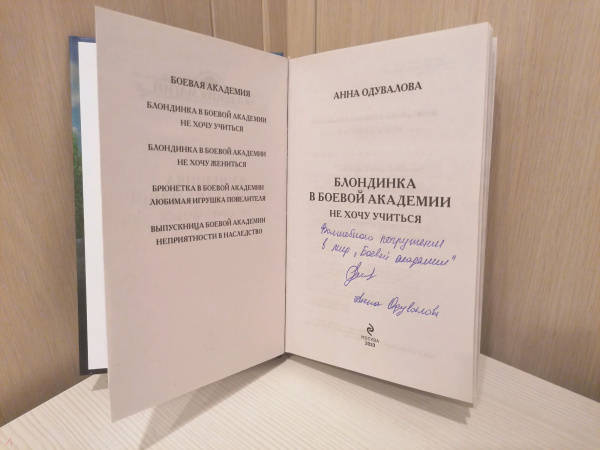 БОЕВАЯ АКАДЕМИЯ
БЛОНДИНКА В БОЕВОЙ АКАДЕМИИ
НЕ ХОЧУ УЧИТЬСЯ
БЛОНДИНКА В БОЕВОЙ АКАДЕМИИ
НЕ ХОЧУ ЖЕНИТЬСЯ
БРЮНЕТКА В БОЕВОЙ АКАДЕМИИ
ЛЮБИМАЯ ИГРУШКА ПОВЕЛИТЕЛЯ
ВЫПУСКНИЦА БОЕВОЙ АКАДЕМИИ
НЕПРИЯТНОСТИ В НАСЛЕДСТВО
АННА ОДУВАЛОВА
БЛОНДИНКА
В БОЕВОЙ АКАДЕМИИ
НЕ ХОЧУ УЧИТЬСЯ
Волшебного погружения
в мир „Боевой академии"
Анна Одувалова
МОСКВА
2023